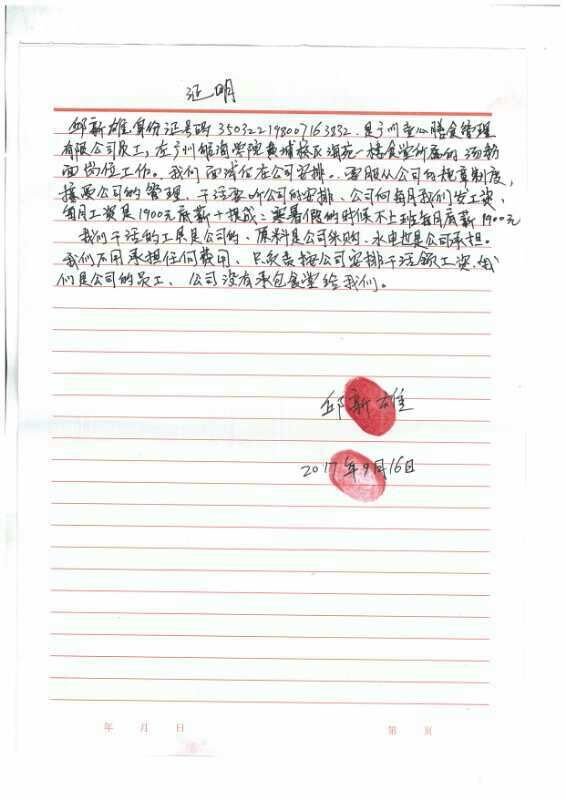 证明
邱新雄身份证号码350322198007163832.是广州童心膳食管理
有限公司员工,在广州航海学院黄埔校区 一楼食堂 的汤粉
面岗位工作。我们面试 在公司安排.要服从公司的规章制度,
接受公司的管理、干活要听公司的安排、公司向每月我们发工资、
每月工资是1900元底薪+提成;寒暑假的时候不上班每月底薪1900元
我们干活的工具是公司的、原料是公司采购、水电也是公司承担.
我们不用承担任何费用、只负责按公司安排干活领工资.我
们是公司的员工、公司没有承包食堂给我们。
邱新雄
2017年9月16日
年 月 日 第 页